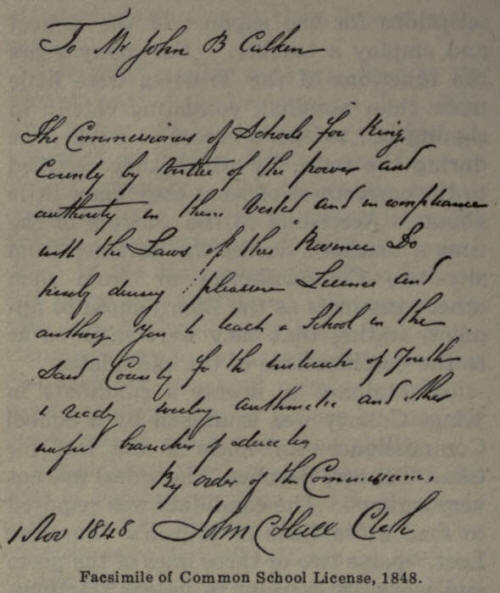 To Mr John B Calken
The Commissioners of Schools for Kings
County by virtue of the power and
authority in them Vested and in compliance
with the Laws of this Province Do
hereby during pleasure License and
authorize You to teach a School in the
Said County for the instructn of Youth
in readg writing arithmetic and other
useful branches of education
By order of the Commissioners,
1 Nov 1848 John C Hall Clerk
Facsimile of Common School License, 1848.